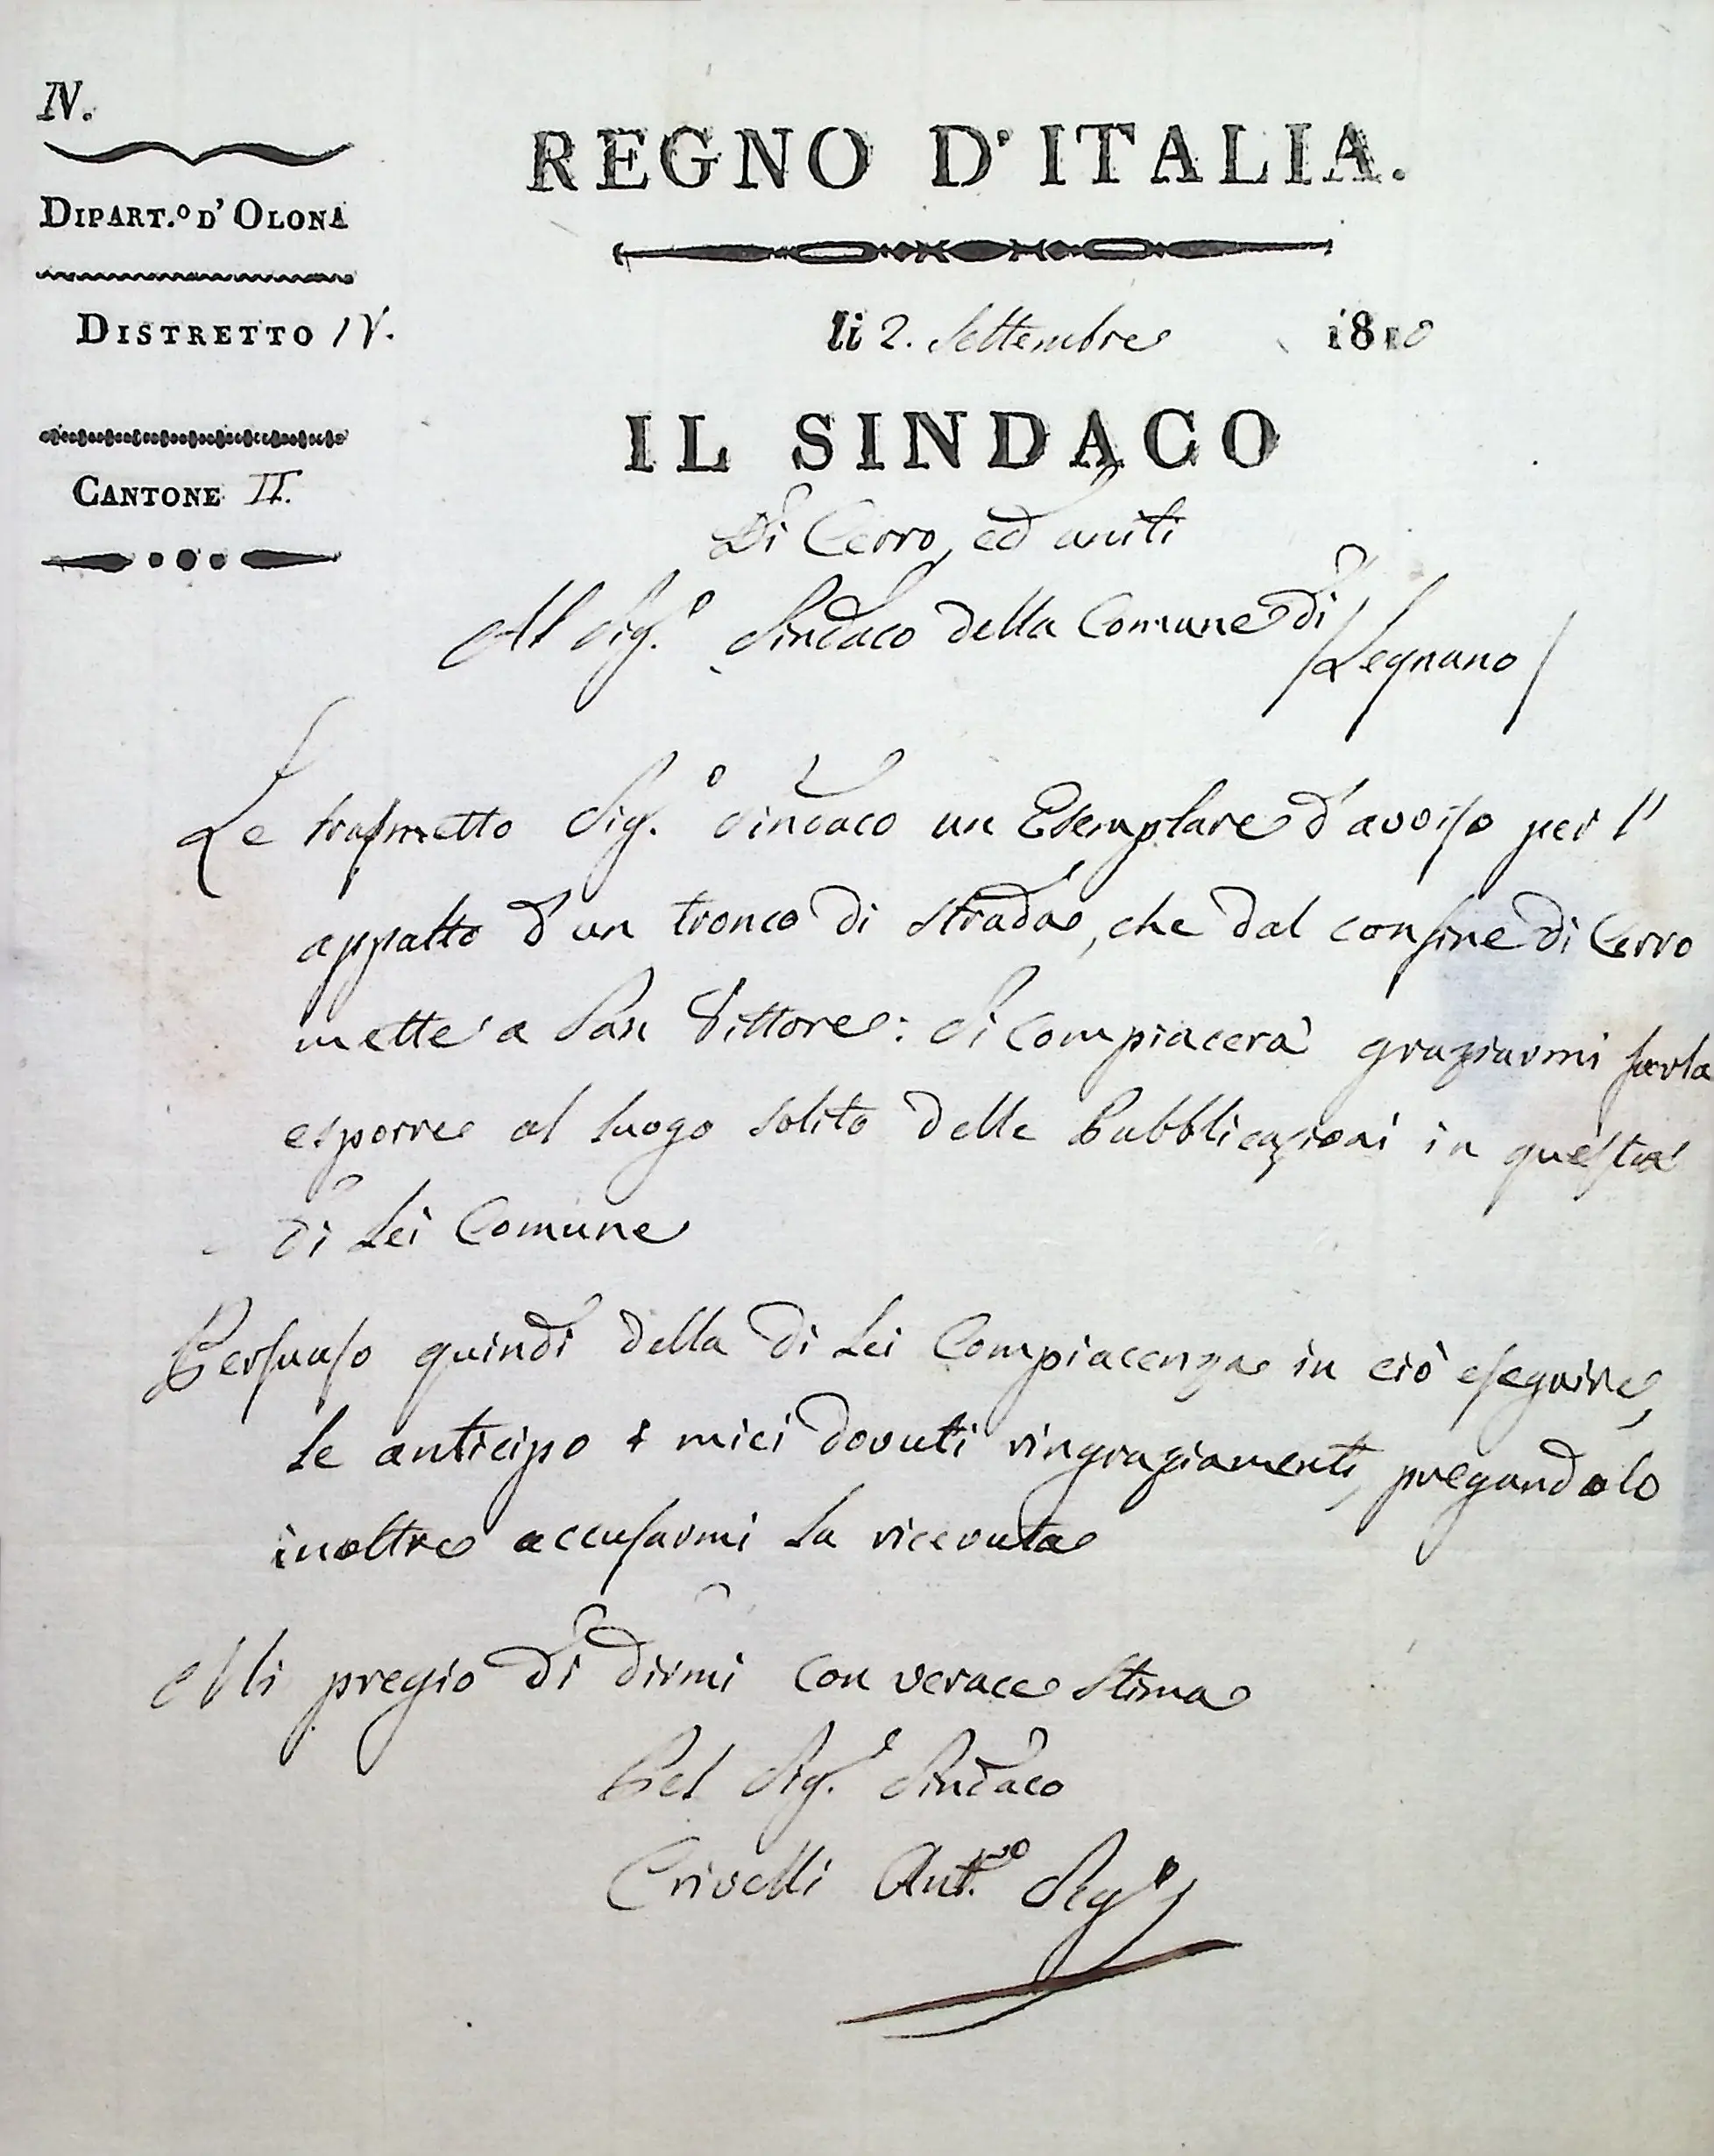 N.
DIPART.º D' OLONA
DISTRETTO IV.
CANTONE II.
REGNO D'ITALIA.
li 2. Settembre 1810
IL SINDACO
Di Cerro, ed uniti
Al Sig.º Sindaco della Comune di
Legnano
Le trasmetto Sig.º Sindaco un Esemplare d'avviso per l'
appalto d'un tronco di strada, che dal confine di Cerro
mette a San Vittore: Si compiacerà graziarmi farla
esporre al luogo solito delle Pubblicazioni in questa
di Lei Comune
Persuaso quindi della di Lei Compiacenza in ciò eseguire,
Le anticipo i miei dovuti ringraziamenti, pregandolo
inoltre accusarmi la ricevuta
Mi pregio di dirmi con verace stima
Pel Sig.e Sindaco
Crivelli Ant.io Seg.o